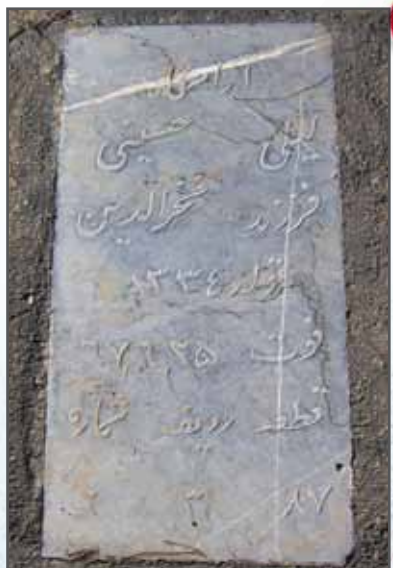 آرامگاه
لیلی حسینی
فرزند فخرالدین
تولد ۱۳۳٤
فوت
قطعه ردیف شماره
۸۷ ۳